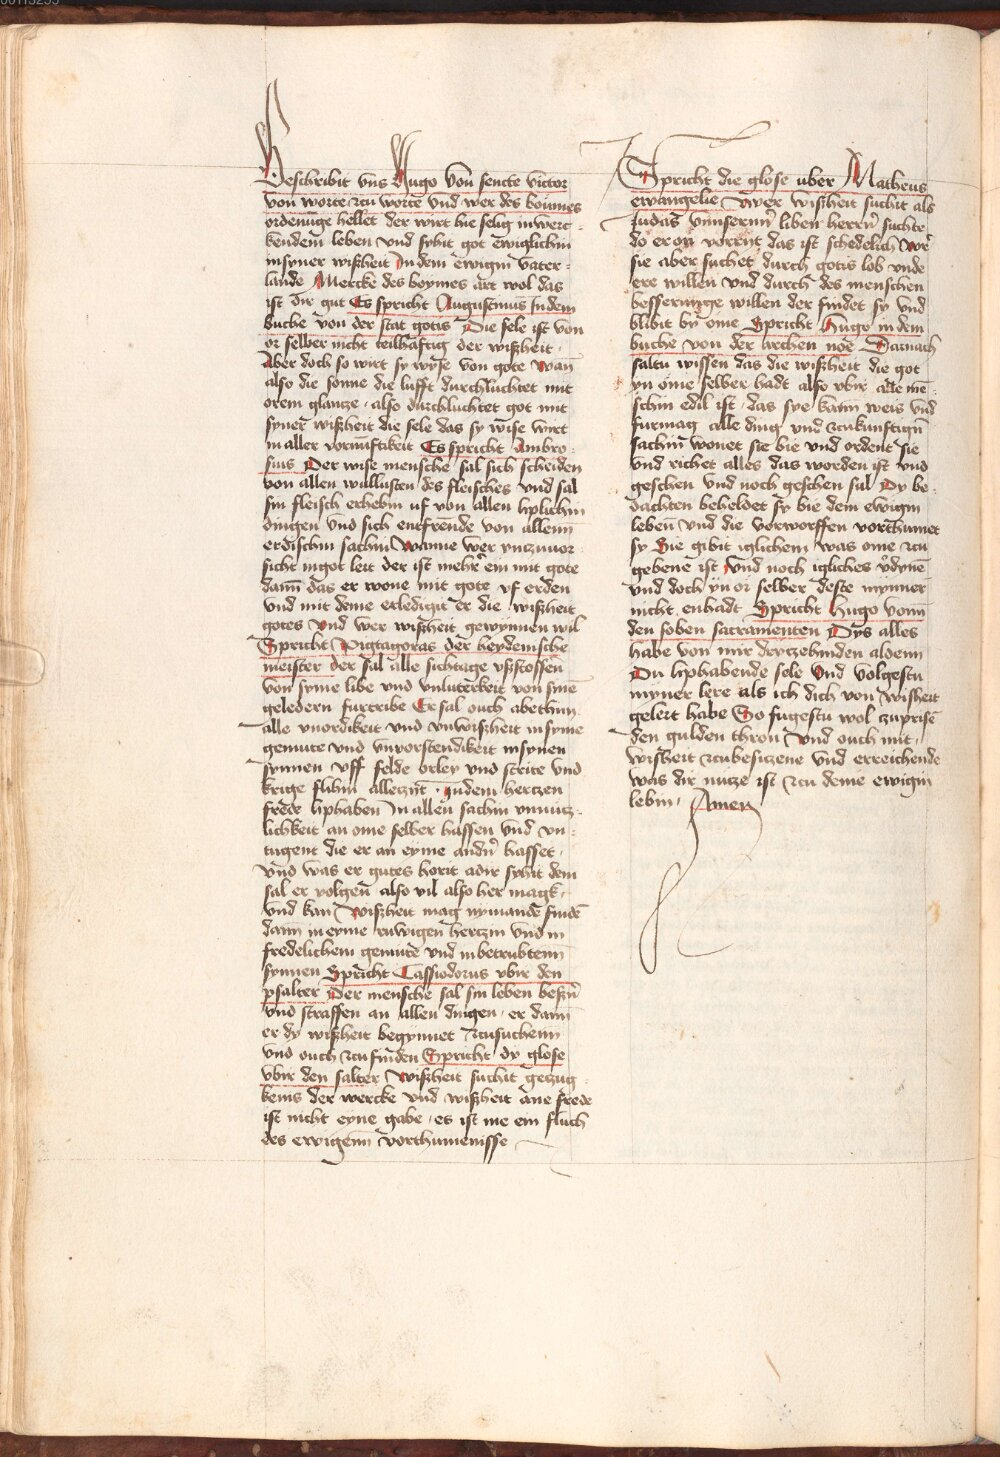 Beschribit vns Hugo von sencte victor
von worte zcu worte vnd wer des boumes
ordenüge heltet der wirt hie selig in werc-
kendem leben vnd syhit got ewiglichin
in syner wißheit In dem ewigin vater-
lande Mercke des boymes art wol das
ist dir gut Es spricht Augustinus In dem
buche von der stat gotis Die sele ist von
or selber nicht teilhaftig der wißheit.
Aber doch so wirt sy wyse von gote wan
also die sonne die lufft durchluchtet mit
orem glantze. also durchluchtet got mit
syner wißheit die sele das sy wise wirt
in aller vornunftikeit Es spricht Ambro-
sius Der wise mensche sal sich scheiden
von allen wullusten des fleisches vnd sal
sin fleisch erhebin uf von allen liplichin
dingen vnd sich entfrende von allenn
erdischin sachin Wanne wer ynczuuor
sicht in got leit der ist mehr ein mit gote
dann das er wone mit gote vf erden
vnd mit deme erledigit er die wißheit
gotes vnd wer wißheit gewynnen wil
Spricht Pigtagoras der heydenische
meister der sal alle sichtage vßstossen
von syme libe vnd vnluterkeit von sine
geledern furtribe Er sal ouch abethun
alle vnordikeit vnd vnwißheit in syme
gemute vnd vnvorstendikeit in synen
synnen vff felde orley vnd strite vnd
krige fluhin alleczijt. In dem hertzen
frede liphaben In allen sachin vnnutz-
lichkeit an ome selber hassen vnd vn-
tugent die er an eyme andn hasset.
vnd was er gutes horit adir syhit dem
sal er volgen also vil also her magk.
vnd kan Wißheit mag nymande finde
dann in eyme ruwigen hertzin vnd in
fredelichem gemute vnd in betrubtenn
synnen Spricht Cassiodorus vbir den
psalter Der mensche sal sin leben bessn
vnd straffen an allen dingen. er dann
er dy wißheit begynnet zcusuchenn
vnd ouch zcu finden Spricht dy glose
vbir den salter Wißheit suchit geczug
kenis der wercke vnd wißheit ane frede
ist nicht eyne gabe. es ist me ein fluch
des ewigenn vorthumenisse
Spricht die glose uber Matheus
ewangelie Wer wißheit suchit als
Judas vnnserm liben herrn suchte
do er on vorriet das ist schedelich Wer
sie aber suchet durch gotis lob vnde
ere willen vnd durch des menschen
besserunge willen der findet sy vnd
blibit by ome Spricht Hugo in dem
buche von der archen noe Darnach
saltu wissen das die wißheit die got
yn ome selber hadt also vbir alle me-
schin edil ist. das sye kann weis vnd
furmag alle ding vnd zcukunftign
sachin wonet sie bie vnd ordent sie
vnd richet alles das worden ist vnd
geschen vnd noch geschen sal Dy be-
dachten beheldet sy bie dem ewigin
leben vnd die vorworffen vorthumet
sy Sie gibit iglichem was ome zcu
gebene ist vnd noch igliches vdyne
vnd doch yn or selber deste mynner
nicht enhadt Spricht Hugo vonn
den soben sacramenten Dys alles
habe von mir dyczebinden aldenn
Du liphabende sele vnd volgestu
myner lere als ich dich von Wisheit
gelert habe So fugestu wol zcuprise
den gulden thron vnd ouch mit
wisheit zcubesitzene vnd erreichende
was dir nutze ist zcu deme ewigin
lebin. Amen